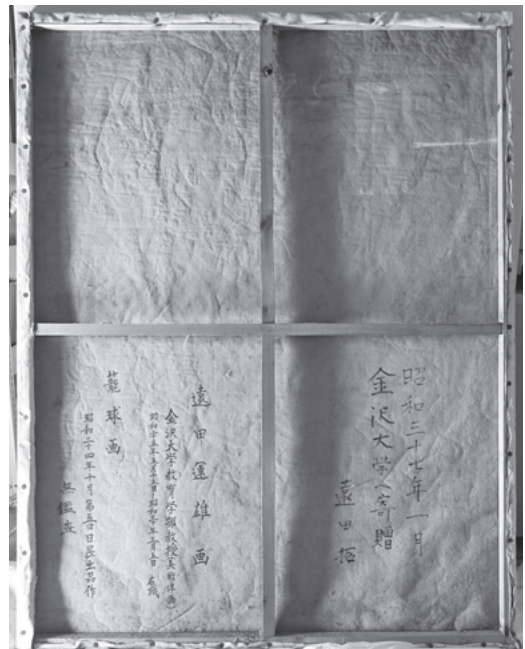 昭和三十七年一月
金沢大学へ寄贈
遠田
遠田運雄画
金沢大学教育学部教授美術
籠球画
昭和二十四年十月第五回日展出品作
無鑑査